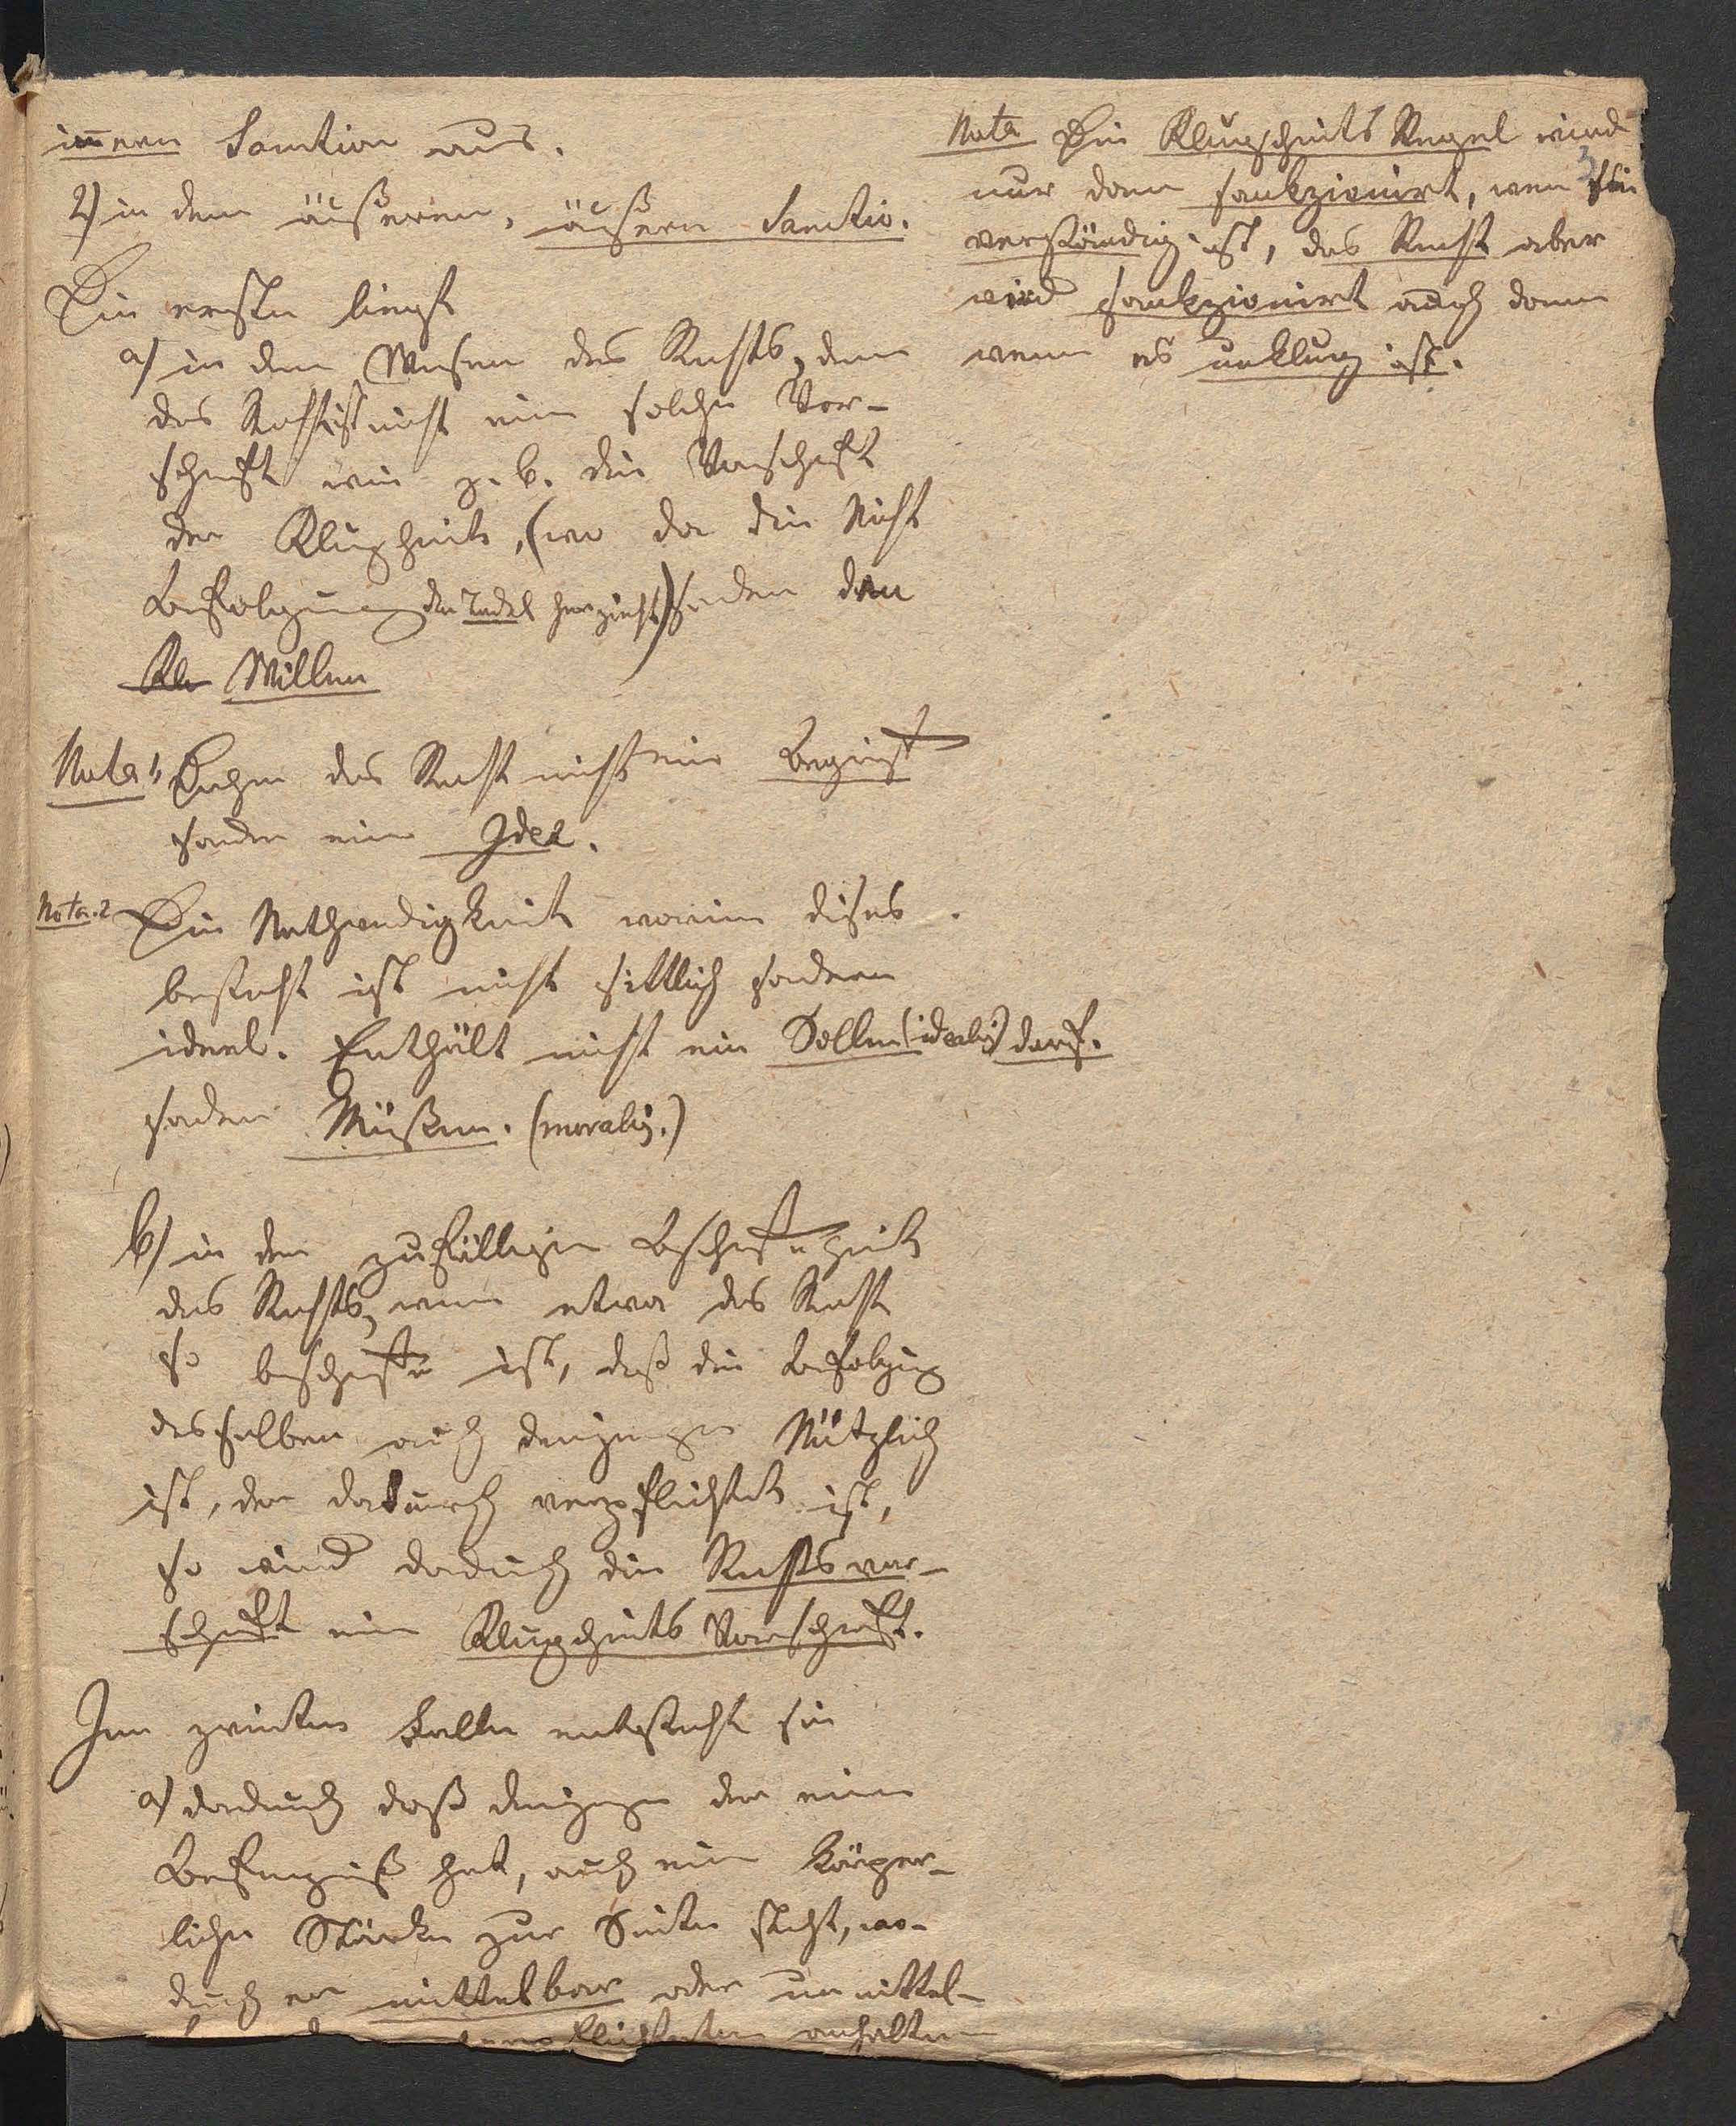 innern Sanction aus.
2) in dem äußeren, äußern Sanctio.
Die erste liegt
a) in dem Wesen des Rechts, denn
das Recht ist nicht eine solche Vor-
schrift wie z. b. die Vorschrift
der Klugheit, (wo da die Nicht
Befolgung den Tadel herzieht) sondern den
Kle Willen
Nota 1, Daher das Recht nicht ein Begriff
sondern eine Idee.
Nota. 2 Die Nothwendigkeit worinn dieses
besteht ist nicht sittlich sondern
ideel. Enthält nicht ein Sollen (idealis) darf.
sondern Müßen. (moralis.)
b) in der zufälligen Beschaffenheit
des Rechts, wenn etwa das Recht
so beschaffen ist, daß die Befolgung
desselben auch denjenigen Nützlich
ist, der dadurch verpflichtet ist,
so wird dadurch die Rechtsvor-
schrift eine Klugheits Vorschrift.
Im zweiten Falle entsteht sie
a) dadurch daß denjenigen der eine
Befugniß hat, auch eine körper-
liche Stärke zur Seite steht, wo-
durch er mittelbar oder unmittel-
verpflichteten anhalten
Nota Die Klugheits Regel wird
nur dann sankzionirt, wenn sie
verständig ist, das Recht aber
wird sankzionirt auch dann
wenn es unklug ist.
3